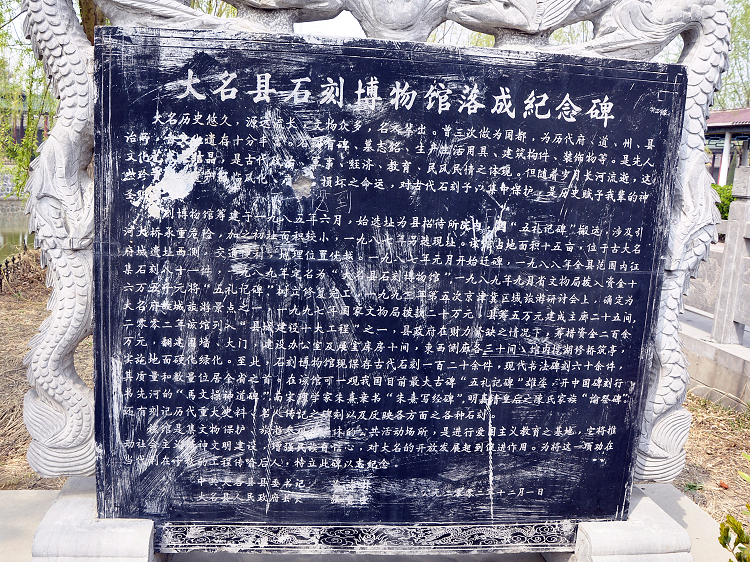 大名县石刻博物馆落成紀念碑
大名历史悠久，源远流长，文物众多，名人辈出。曾三次做为国都，为历代府、道、州、县
治所，文化遗存十分丰 名 碑、墓志铭、生产生活用具、建筑构件、装饰物等。是先人
文化艺术 结晶，是古代政治、军事、经济、教育、民风民情之体现。但随着岁月长河流逝，这
些珍 临风化 损坏之命运，对古代石刻予以集中保护，是历史赋予我辈的神

刻博物馆筹建于一九八五年六月，始选址为县招待所院 “五礼记碑”搬运，涉及引
河大桥承重危险，加之初址面积较小，一九八 年另选现址。 占地面积十五亩，位于古大名
府城遗址西侧，交通便利，地理位置优越。一九八七年元月开始迁碑，一九八八年全县范围内征
集石刻八十一件，一九八九年定名为“大名县石刻博物馆”。一九八九年九月省文物局拨入资金十
六万五千元将“五礼记碑”树立修复完工。一九九三年第五次京津冀五城旅游研讨会上，确定为
大名府故城旅游景点之一。一九九七年国家文物局拨款二十万元，县筹五万元建成主廊二十五间，
二零零二年该馆列入“县城建设十大工程”之一，县政府在财力紧缺之情况下，筹措资金二百余
万元，翻建围墙、大门，建设办公室及展室库房十间，东西侧廊各三十间，馆内挖湖修桥筑亭，
实施地面硬化绿化。至此，石刻博物馆现保存古代石刻一百二十余件，现代书法碑刻六十余件，
其质量和数量位居全省之首。在该馆可一观我国目前最大古碑“五礼记碑”雄姿，开中国碑刻行
书先河的“马文操神道碑”，南宋理学家朱熹亲书“朱熹写经碑”，明嘉靖皇后之陈氏家族“谕祭碑”
还有刻记历代重大史料、名人传记之碑刻以及反映各方面之各种石刻。
该馆是集文物保护、旅游参观 一体的公共活动场所，是进行爱国主义教育之基地，它将推
动社会主义精神文明建设，增强民族自信心，对大名的开放发展起到促进作用。为将这一功在
当代利在千秋的工程传諭后人，特立此碑以志纪念。
中共大名县县委书记
大名县人民政府县长
公元二零零二年十二月一日